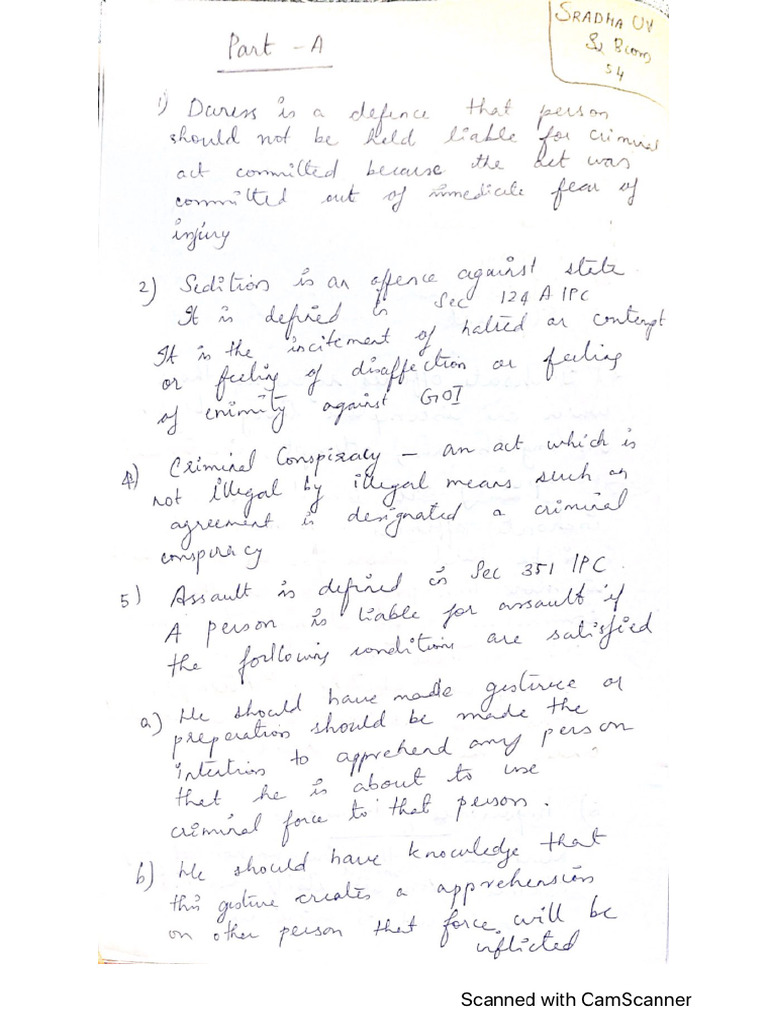 Part - A
SRADHA UV
S2 Bcom
54
1) Duress is a defence that person
should not be held liable for criminal
act committed because the act was
committed out of immediate fear of
injury
2) Sedition is an offence against state
It is defined in Sec 124 A IPC
It is the incitement of hatred or contempt
or feeling of disaffection or feeling
of enimity against GOI
4) Criminal Conspiracy - an act which is
not illegal by illegal means such an
agreement is designated a criminal
conspiracy
5) Assault is defined in Sec 351 IPC.
A person is liable for assault if
the following conditions are satisfied
a) He should have made gesture or
preparation should be made the
intention to apprehend any person
that he is about to use
criminal force to that person.
b) He should have knowledge that
this gesture creates a apprehension
on other person that force will be
inflicted
Scanned with CamScanner